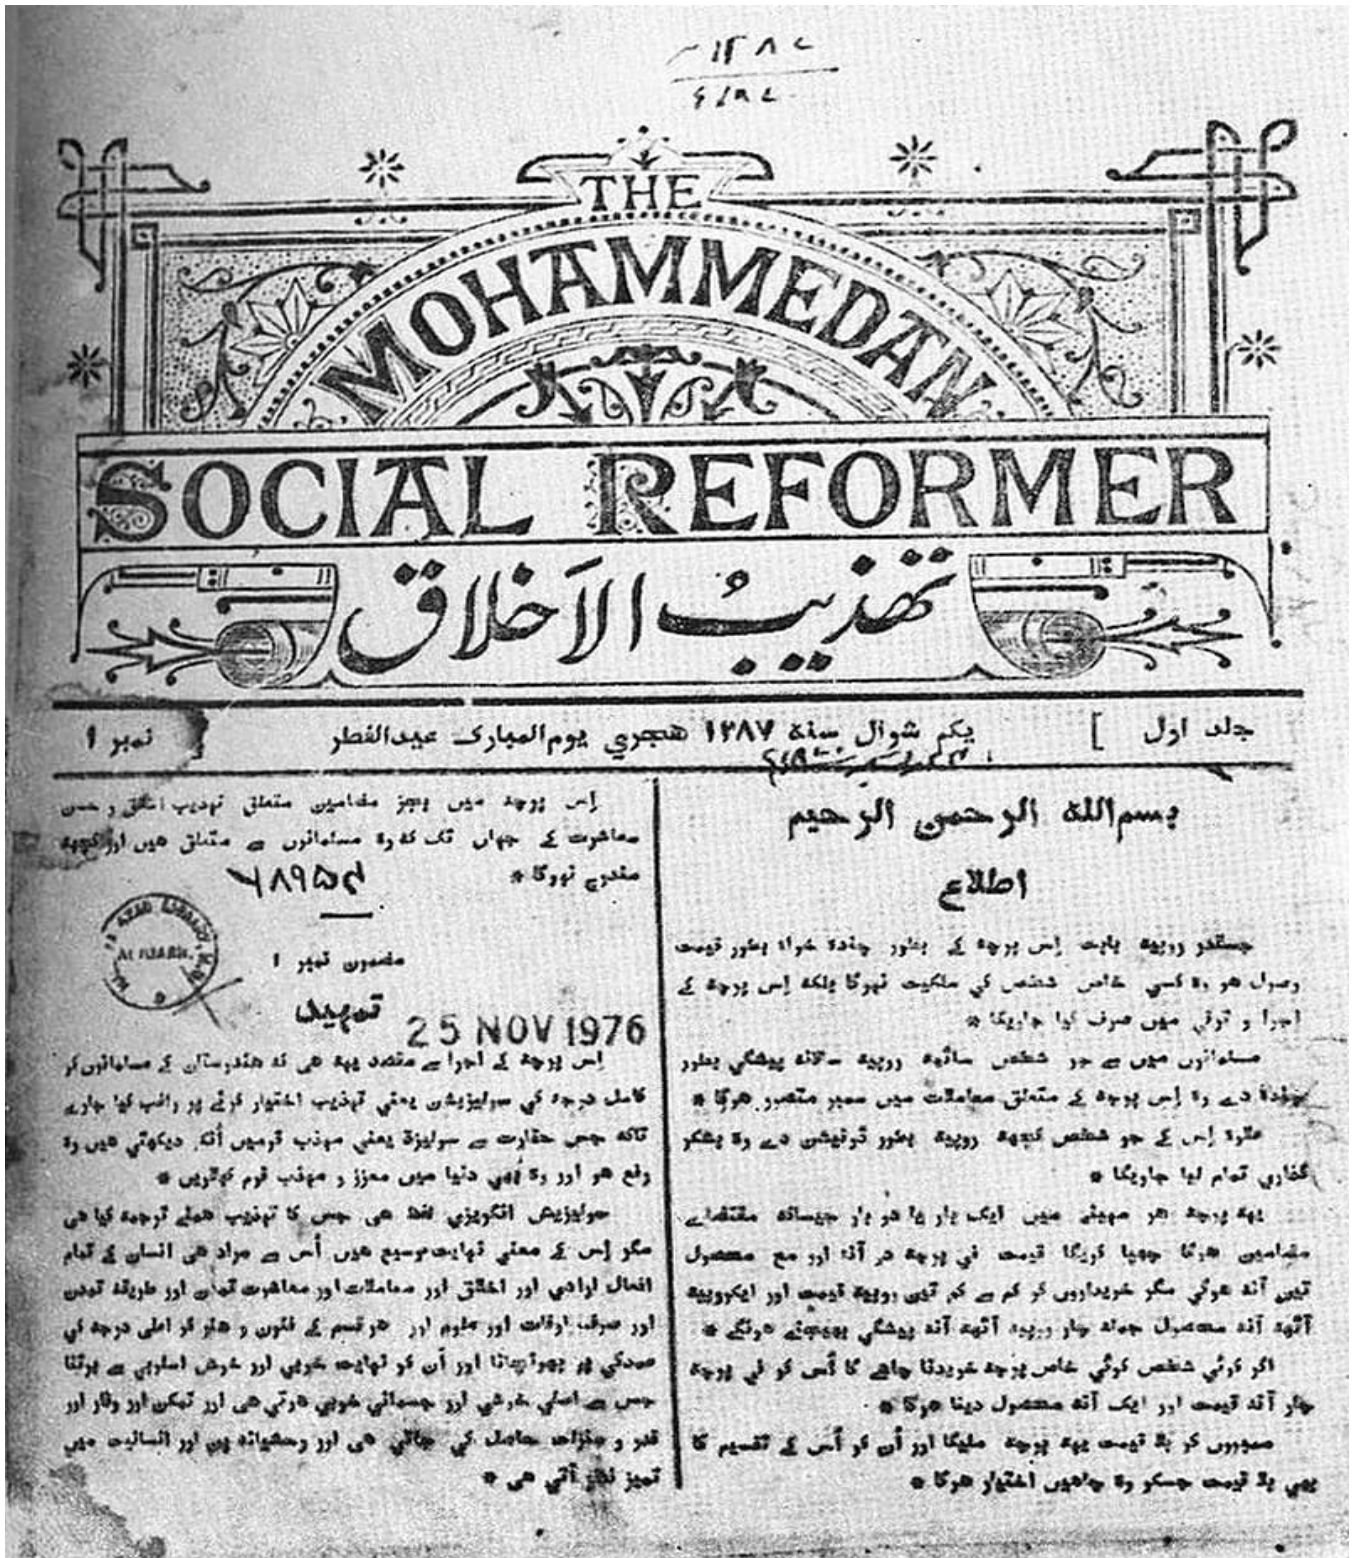 ۱۲۸۷
THE
MOHAMMEDAN
SOCIAL REFORMER
تهذیبُ الاَخلاق
جلد اول
یکم شوال سنه ۱۲۸۷ هجري یوم‌المبارک عیدالفطر
نمبر ۱
بسم‌الله الرحمن الرحیم
اطلاع
جسقدر روپیه بابت اِس پرچه کے بطور چنده خواه بطور قیمت
وصول هو وه کسي خاص شخص کي ملکیت نهوگا بلکه اِس پرچه کے
اجرا و ترقي میں صرف کیا جاویگا *
مسلمانوں میں سے جو شخص ساٹهه روپیه سالانه پیشگي بطور
چنده دے وه اِس پرچه کے متعلق معاملات میں ممبر متصور هوگا *
علاوه اِس کے جو شخص کچهه روپیه بطور ڈونیشن دے وه بشکر
گذاري تمام لیا جاویگا *
یهه پرچه هر مهینے میں ایک بار یا دو بار جیسا‌که مقتضاے
مضامین هوگا چهپا کریگا قیمت في پرچه در آنه اور مع محصول
تین آنه هوگي مگر خریداروں کو کم سے کم تین روپیه قیمت اور ایکروپیه
آٹهه آنه محصول جمله چار روپیه آٹهه آنه پیشگي بهیجنے هونگے *
اگر کوئي شخص کوئي خاص پرچه خریدنا چاهے گا اُس کو في پرچه
چار آنه قیمت اور ایک آنه محصول دینا هوگا *
ممبروں کو بلا قیمت یهه پرچه ملیگا اور اُن کو اُس کے تقسیم کا
بهي بلا قیمت جسکو وه چاهیں اختیار هوگا *
اِس پرچه میں بجز مضامین متعلق تهذیب اخلاق و حسن
معاشرت کے جهاں تک که وه مسلمانوں سے متعلق هیں اور کچهه
مندرج نهوگا *
۷۸۹۵۴
مضمون نمبر ۱
تمهید
25 NOV 1976
اِس پرچه کے اجرا سے مقصد یهه هی که هندوستان کے مسلمانوں کو
کامل درجه کي سولیزیشن یعني تهذیب اختیار کرنے پر راغب کیا جاوے
تاکه جس حقارت سے سولیزڈ یعني مهذب قومیں اُنکو دیکهتي هیں وه
رفع هو اور وه بهي دنیا میں معزز و مهذب قوم کهلاویں *
سولیزیشن انگریزي لفظ هی جس کا تهذیب همنے ترجمه کیا هی
مگر اِس کے معني نهایت وسیع هیں اُس سے مراد هی انسان کے تمام
افعال ارادي اور اخلاق اور معاملات اور معاشرت تمدن اور طریقه تمدن
اور صرف اوقات اور علوم اور هر قسم کے فنون و هنر کو اعلی درجه کي
عمدگي پر پهونچانا اور اُن کو نهایت خوبي اور خوش اسلوبي سے برتنا
جس سے اصلي خوشي اور جسماني خوبي هوتي هی اور تمکن اور وقار اور
قدر و منزلت حاصل کي جاتي هی اور وحشیانه پن اور انسانیت میں
تمیز نظر آتي هی *